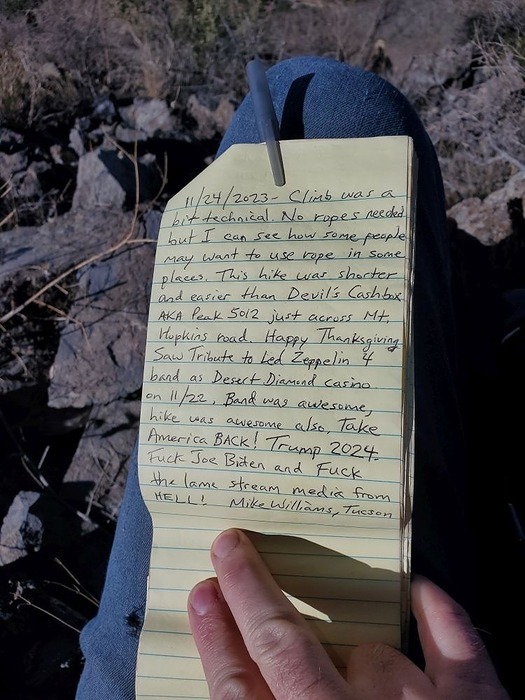 11/24/2023- Climb was a
bit technical. No ropes needed
but I can see how some people
may want to use rope in some
places. This hike was shorter
and easier than Devil's Cashbox
AKA Peak 5012 just across Mt.
Hopkins road. Happy Thanksgiving
Saw Tribute to Led Zeppelin 4
band as Desert Diamond casino
on 11/22. Band was awesome,
hike was awesome also. Take
America BACK! Trump 2024.
Fuck Joe Biden and Fuck
the lame stream media from
HELL! Mike Williams, Tucson